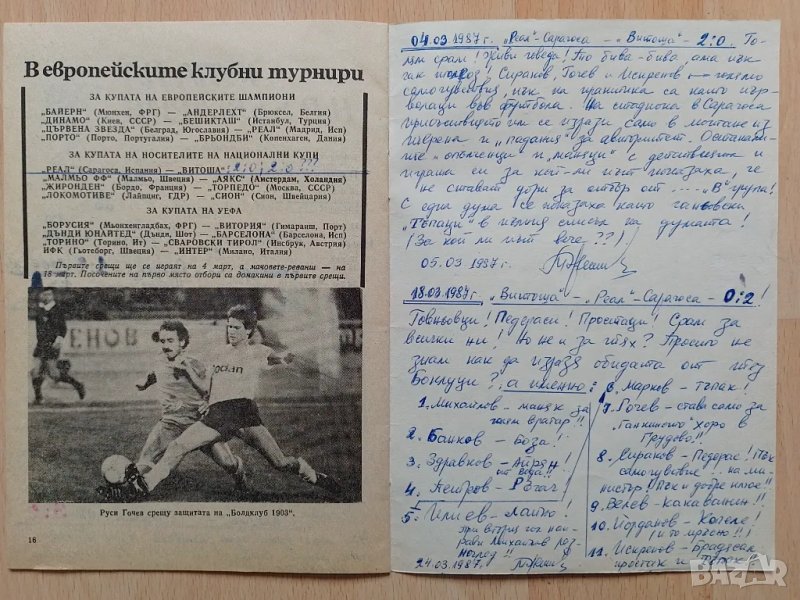 В европейските клубни турнири
ЗА КУПАТА НА ЕВРОПЕЙСКИТЕ ШАМПИОНИ
„БАЙЕРН“ (Мюнхен, ФРГ) — „АНДЕРЛЕХТ“ (Брюксел, Белгия)
„ДИНАМО“ (Киев, СССР) — „БЕШИКТАШ“ (Истанбул, Турция)
„ЦЪРВЕНА ЗВЕЗДА“ (Белград, Югославия) — „РЕАЛ“ (Мадрид, Исп)
„ПОРТО“ (Порто, Португалия) — „БРЬОНДБИ“ (Копенхаген, Дания)
ЗА КУПАТА НА НОСИТЕЛИТЕ НА НАЦИОНАЛНИ КУПИ
„РЕАЛ“ (Сарагоса, Испания) — „ВИТОША“ 2:0; 2:0!!!
„МАЛМЬО ФФ“ (Малмьо, Швеция) — „АЯКС“ (Амстердам, Холандия)
„ЖИРОНДЕН“ (Бордо, Франция) — „ТОРПЕДО“ (Москва, СССР)
„ЛОКОМОТИВЕ“ (Лайпциг, ГДР) — „СИОН“ (Сион, Швейцария)
ЗА КУПАТА НА УЕФА
„БОРУСИЯ“ (Мьонхенгладбах, ФРГ) — „ВИТОРИЯ“ (Гимараиш, Порт)
„ДЪНДИ ЮНАЙТЕД“ (Дънди, Шот) — „БАРСЕЛОНА“ (Барселона, Исп)
„ТОРИНО“ (Торино, Ит) — „СВАРОВСКИ ТИРОЛ“ (Инсбрук, Австрия)
ИФК (Гьотеборг, Швеция) — „ИНТЕР“ (Милано, Италия)
Първите срещи ще се играят на 4 март, а мачовете-реванши — на
18 март. Посочените на първо място отбори са домакини в първите срещи.
Руси Гочев срещу защитата на „Болдклуб 1903“.
16
04.03.1987 г. „Реал“-Сарагоса — „Витоша“ — 2:0. Го-
лям срам! Живи говеда! То бива-бива, ама чак
так! Сираков, Гочев и Искренов — голямо
самочувствие, пък на практика са като първо-
лаци във футбола. На стадиона в Сарагоса
присъствието им се изрази само в мотане из
терена и „падания“ за авторитет. Останали-
те „опълченци“ и „маняци“ с действия и
играта си за кой-ли път показаха, че
не стават дори за отбор от .... „В“ група!
С една дума се показаха като
„Тъпаци“ в пълния смисъл на думата!
(За кой ли път вече??)
05.03.1987г.
18.03.1987г. „Витоша“ — „Реал“-Сарагоса — 0:2!
Говньовци! Педераси! Простаци! Срам за
всички ни! Но не и за тях? Просто не
знам как да изразя обидата от тези
Боклуци?, а именно:
1. Михайлов — маняк за
вратар!!
2. Банков — Боза!
3. Здравков — Айрян
от вода!!
4. Петров — Рогач!
5. Илиев — Лайно!
При втория гол нап-
рави Михайлов раз-
ногляд!!
24.03.1987г.
6. Марков — тъпак!
7. Гочев — става само за
хоро в
Грудово!!
8. Сираков — Педерас! Пък
самочувствие!.. на ми-
нистър!
9. Велев —
10. Йорданов — Копеле!
11. Искренов —
простак и
BAZAR